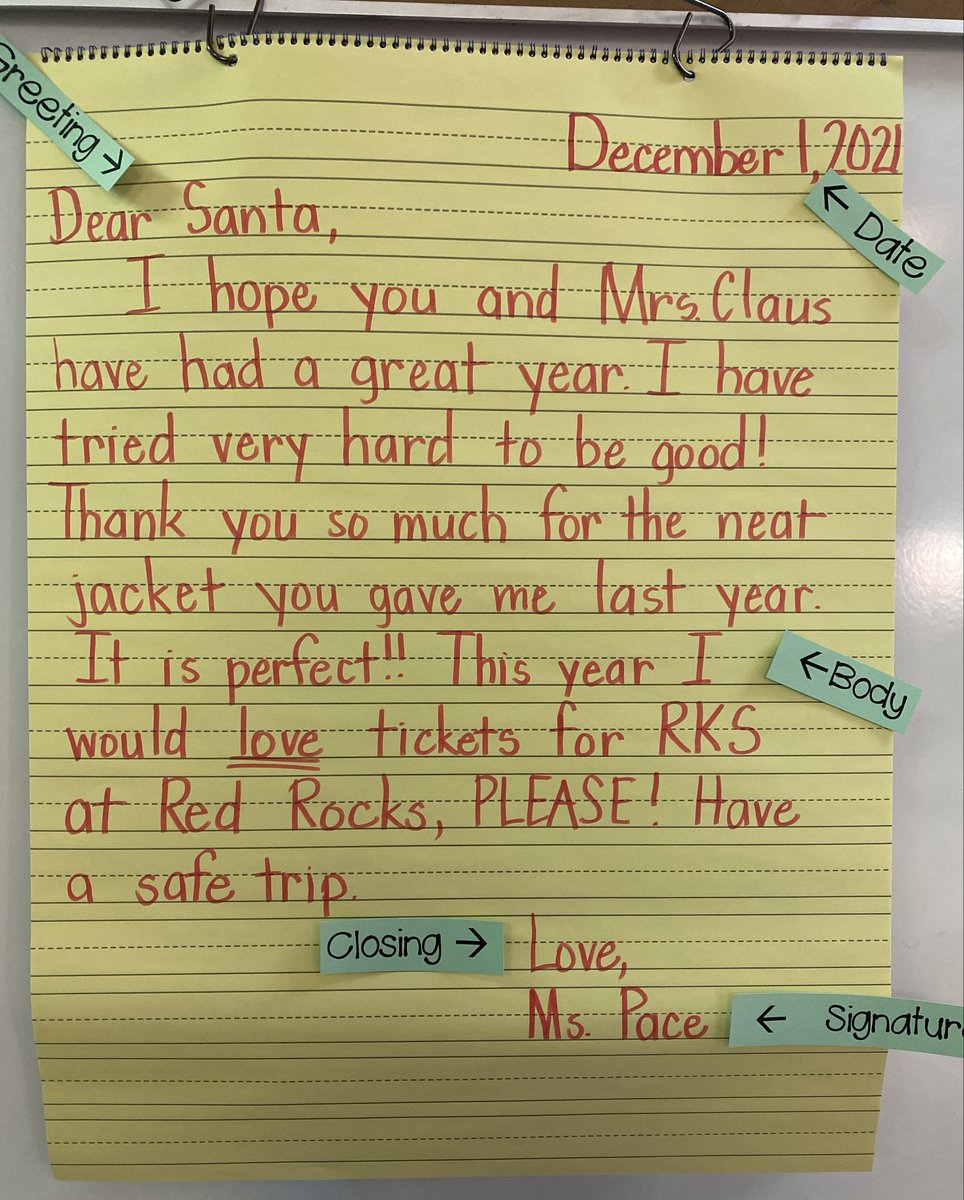 Greeting →
December 1, 2021
← Date
Dear Santa,
I hope you and Mrs. Claus
have had a great year. I have
tried very hard to be good!
Thank you so much for the neat
jacket you gave me last year.
It is perfect!! This year I
← Body
would love tickets for RKS
at Red Rocks, PLEASE! Have
a safe trip.
Closing → Love,
Ms. Pace ← Signature